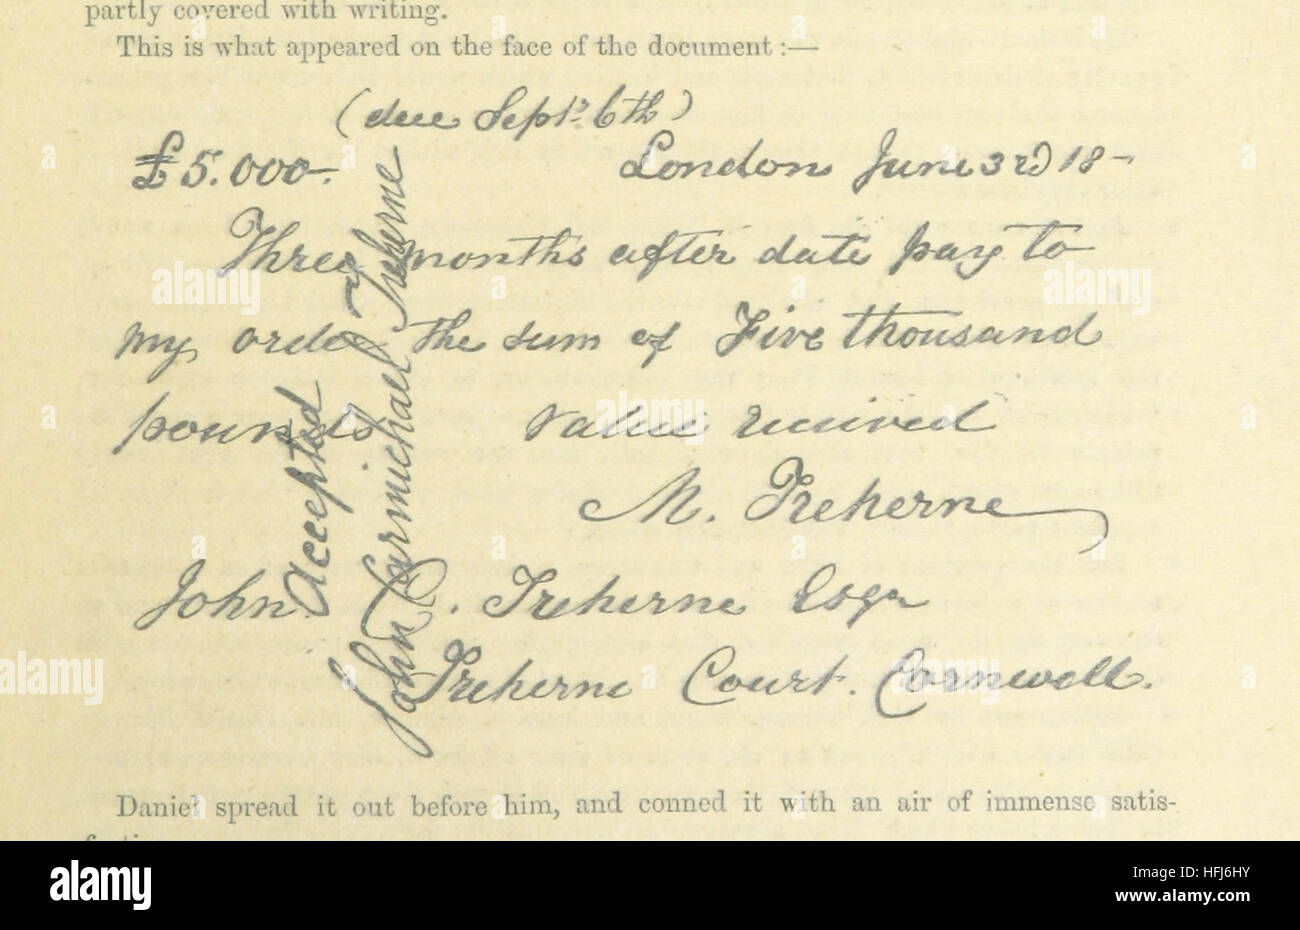 partly covered with writing.
This is what appeared on the face of the document :—
(due Septr 6th)
£5.000-. London June 3rd 18-
Three months after date pay to
my order the sum of Five thousand
pounds value received
M. Treherne
John C. Treherne Esqr
Treherne Court. Cornwall.
Accepted
John Carmichael Treherne
Daniel spread it out before him, and conned it with an air of immense satis-
alamy
Image ID: HFJ6HY
www.alamy.com